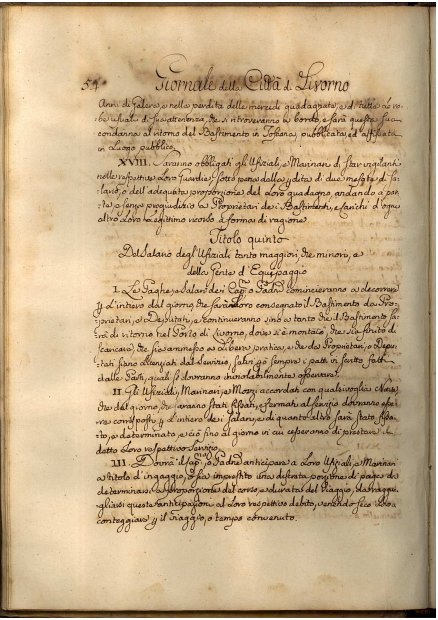 54 Giornale della Città di Livorno
Anni di Galera, e nella perdita delle mercedi guadagnate, e di tutta la ro-
be usuali di sua attenenza, che si troveranno a bordo, e sarà questa sua
condanna al ritorno del Bastimento in Toscana, pubblicata, ed affissata
in Luogo pubblico
XVIII. Saranno obbligati gli Ufiziali, e Marinari di star vigilanti
nelle respettive Loro Guardie sotto pena della perdita di due mesate di Sa-
lario, o dell'adequata proporzione del Loro guadagno, andando a par-
te, e senza pregiudizio ai Proprietari dei Bastimenti, e carichi d'ogni
altro Loro Legittimo ricorso a forma di ragione
Titolo quinto
Del Salario degl'Ufiziali tanto maggiori, che minori, e
della Gente d'Equipaggio
I. Le Paghe, e Salari dei Cap.ni o Padroni comincieranno a decorrere
per l'intiero dal giorno, che sarà Loro consegnato il Bastimento da Pro-
prietari, e Deputati, e continueranno sino a tanto che il Bastimento sa-
rà di ritorno nel Porto di Livorno, dove si è montato, che sia finito di
scaricare, che sia ammesso a Libera pratica, e che da Proprietari, o Depu-
tati siano licenziati dal Servizio, salvi però sempre i patti in scritto fatti
dalle Parti, quali si dovranno inviolabilmente osservare
II. Gli Ufiziali, Marinari, e Mozzi accordati con qualsivoglia Nave,
che dal giorno, che saranno stati fissati, e fermati al servizio dovranno esse-
re corrisposti per l'intiero dei Salari, e di quanto altro sarà stato fissa-
to, e determinato, e ciò fino al giorno in cui cesseranno di prestare il
detto Loro respettivo Servizio
III. Dovrà il Cap.no, o Padrone anticipare a Loro Ufiziali, e Marinari
a titolo d'ingaggio, o sia imprestito una discreta porzione di paga da
determinarsi a proporzione del corso, e durata del Viaggio, da raggua-
gliarsi queste anticipazioni al Loro respettivo debito, venendo seco Loro a
conteggiare per il viaggio, o tempo convenuto.